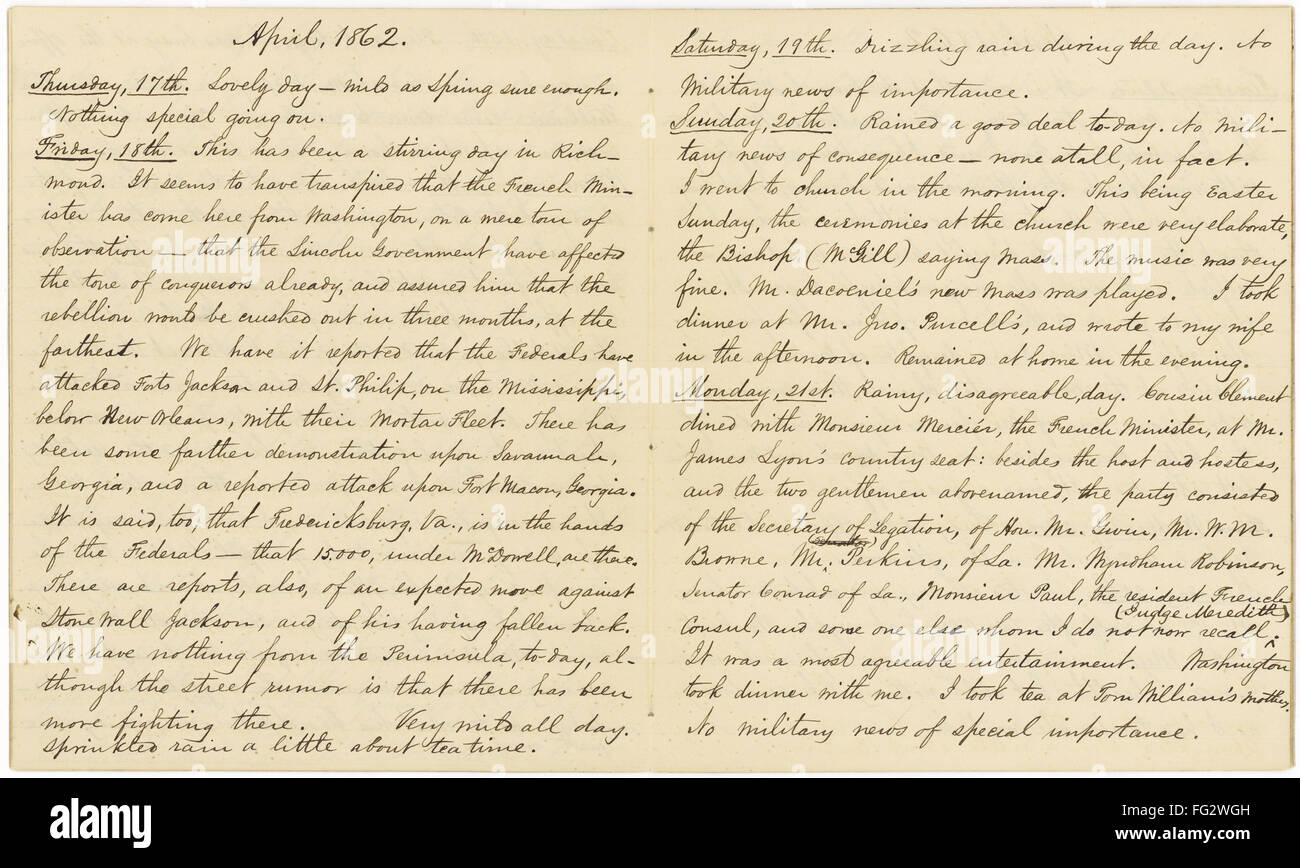 April, 1862.
Thursday, 17th. Lovely day — mild as Spring sure enough.
Nothing special going on.
Friday, 18th. This has been a stirring day in Rich-
mond. It seems to have transpired that the French Min-
ister has come here from Washington, on a mere tour of
observation — that the Lincoln Government have affected
the tone of conquerors already, and assured him that the
rebellion would be crushed out in three months, at the
farthest. We have it reported that the Federals have
attacked Forts Jackson and St. Philip, on the Mississippi,
below New Orleans, with their Mortar Fleet. There has
been some farther demonstration upon Savannah,
Georgia, and a reported attack upon Fort Macon, Georgia.
It is said, too, that Fredericksburg, Va., is in the hands
of the Federals — that 15.000, under McDowell, are there.
There are reports, also, of an expected move against
Stonewall Jackson, and of his having fallen back.
We have nothing from the Peninsula, to-day, al-
though the street rumor is that there has been
more fighting there. Very mild all day.
sprinkled rain a little about tea time.
Saturday, 19th. Drizzling rain during the day. No
Military news of importance.
Sunday, 20th. Rained a good deal to-day. No Mili-
tary news of consequence — none at all, in fact.
I went to church in the morning. This being Easter
Sunday, the ceremonies at the church were very elaborate,
the Bishop (McGill) saying Mass. The music was very
fine. Mr. Dacoeniel's new Mass was played. I took
dinner at Mr. Jno. Purcell's, and wrote to my wife
in the afternoon. Remained at home in the evening.
Monday, 21st. Rainy, disagreeable, day. Cousin Clement
dined with Monsieur Mercier, the French Minister, at Mr.
James Lyon's country seat: besides the host and hostess,
and the two gentlemen abovenamed, the party consisted
of the Secretary of Legation, of Hon. Mr. Gwin, Mr. W. M.
Browne, Mr. Perkins, of La. Mr. Wyndham Robinson,
Senator Conrad of La., Monsieur Paul, the resident French
(Judge Meredith)
Consul, and some one else whom I do not now recall:
It was a most agreeable entertainment. Washington
took dinner with me. I took tea at Tom William's mother.
No military news of special importance.
alamy
alamy stock photo
FG2WGH
www.alamy.com